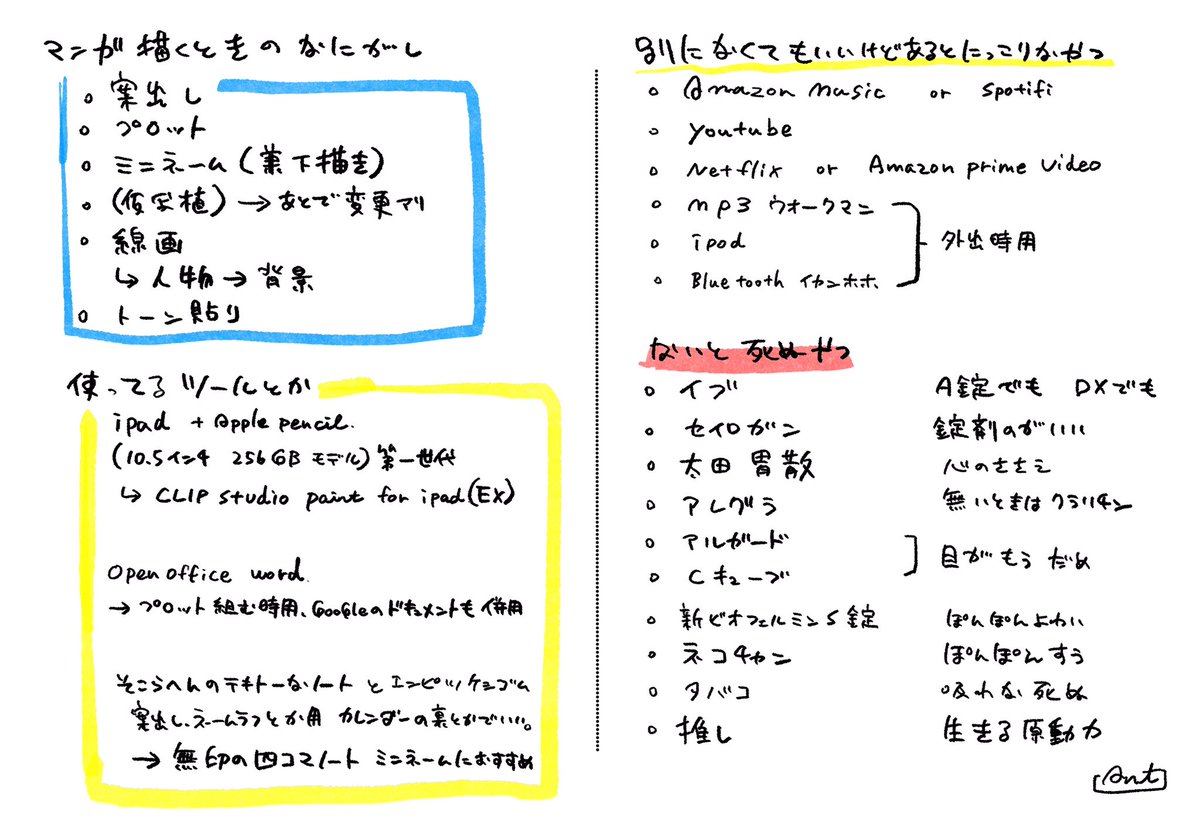 マンガ描くときのなにがし
○ 案出し
○ プロット
○ ミニネーム(兼下描き)
○ (仮写植)→あとで変更アリ
○ 線画
↳ 人物→背景
○ トーン貼り
使ってるツールとか
ipad + Apple pencil.
(10.5インチ 256GBモデル)第一世代
↳ CLIP studio paint for ipad(EX)
Open office word.
→ プロット組む時用、Googleのドキュメントも併用
そこらへんのテキトーなノートとエンピツケシゴム
案出し、ネームラフとか用 カレンダーの裏とかでいい。
→ 無印の四コマノート ミニネームにおすすめ
別になくてもいいけどあるとにっこりなやつ
○ Amazon music or spotifi
○ youtube
○ Netflix or Amazon prime video
○ mp3 ウオークマン
○ ipod
○ Bluetooth イヤンホホ
外出時用
ないと死ぬやつ
○ イブ A錠でも DXでも
○ セイロガン 錠剤のがいい
○ 太田胃散 心のささえ
○ アレグラ 無いときはクラリチン
○ アルガード
○ Cキューブ
目がもうだめ
○ 新ビオフェルミンS錠 ぽんぽんよわい
○ ネコチャン ぽんぽんすう
○ タバコ 吸わな死ぬ
○ 推し 生きる原動力
Ant